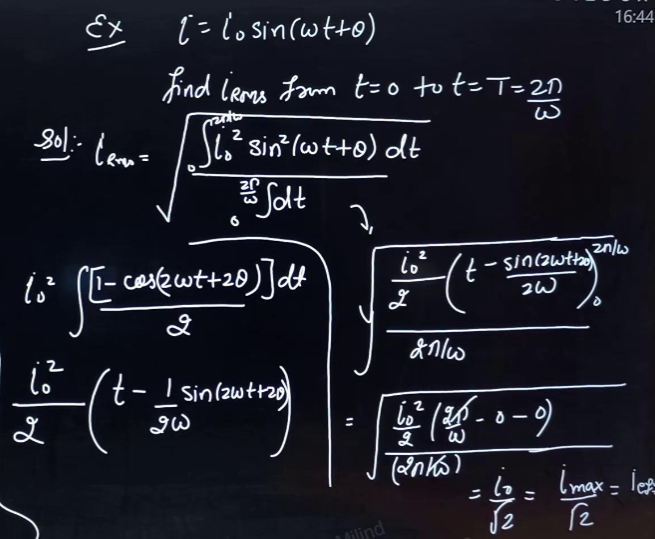 16:44
Ex i = i₀ sin(ωt+θ)
find iRMS from t=0 to t=T= 2π/ω
Sol:- iRMS = √( ₀∫^(2π/ω) i₀² sin²(ωt+θ) dt / ₀∫^(2π/ω) dt )
i₀² ∫ [1 - cos(2ωt+2θ)] dt / 2
i₀²/2 ( t - 1/2ω sin(2ωt+2θ) )
√( i₀²/2 ( t - sin(2ωt+2θ)/2ω )₀^(2π/ω) / 2π/ω )
= √( i₀²/2 ( 2π/ω - 0 - 0 ) / (2π/ω) )
= i₀/√2 = imax/√2 =
Milind